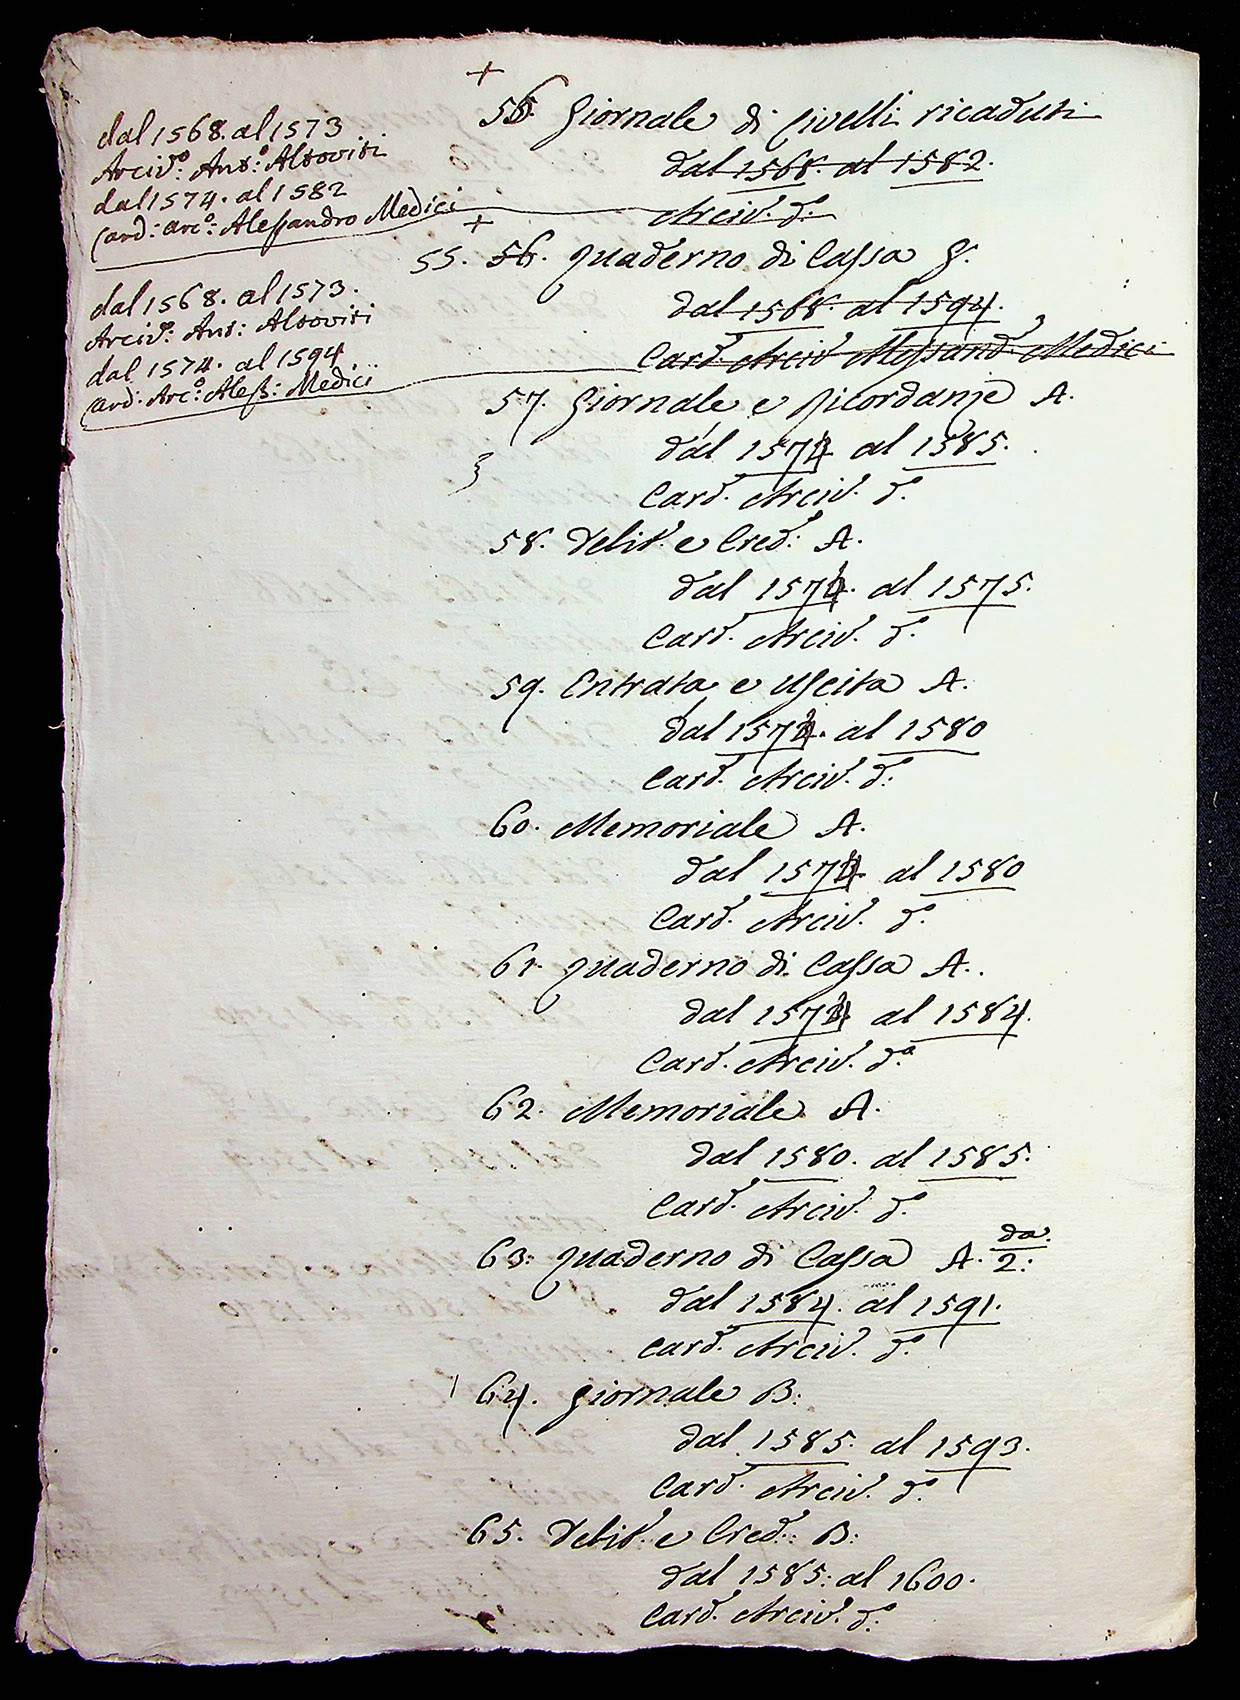 dal 1568. al 1573
Arciv.º: Ant:º Altoviti
dal 1574. al 1582
Card: Arc:º Alessandro Medici
dal 1568. al 1573.
Arciv.º: Ant: Altoviti
dal 1574. al 1594
Card: Arc:º Aless: Medici
+
56. Giornale di Livelli ricaduti
dal 1568. al 1582.
Arciv. d.º
+
55. 56. Quaderno di Cassa G.
dal 1568. al 1594.
Card. Arciv. Alessand. Medici
57. Giornale e Ricordanze A.
dal 1574 al 1585.
Card. Arciv. d.º
58. Debit. e Cred: A.
dal 1574. al 1575.
Card. Arciv. d.º
59. Entrata e Uscita A.
dal 1574. al 1580
Card. Arciv. d.º:
60. Memoriale A.
dal 1574. al 1580
Card. Arciv. d.º
61. Quaderno di Cassa A.
dal 1574 al 1584.
Card. Arciv. d.º
62. Memoriale A.
dal 1580. al 1585.
Card. Arciv. d.º
63: Quaderno di Cassa A. 2:da
dal 1584. al 1591.
Card. Arciv. d.º
64. Giornale B:
dal 1585. al 1593.
Card. Arciv. d.º
65. Debit. e Cred: B:
dal 1585: al 1600.
Card. Arciv. d.º